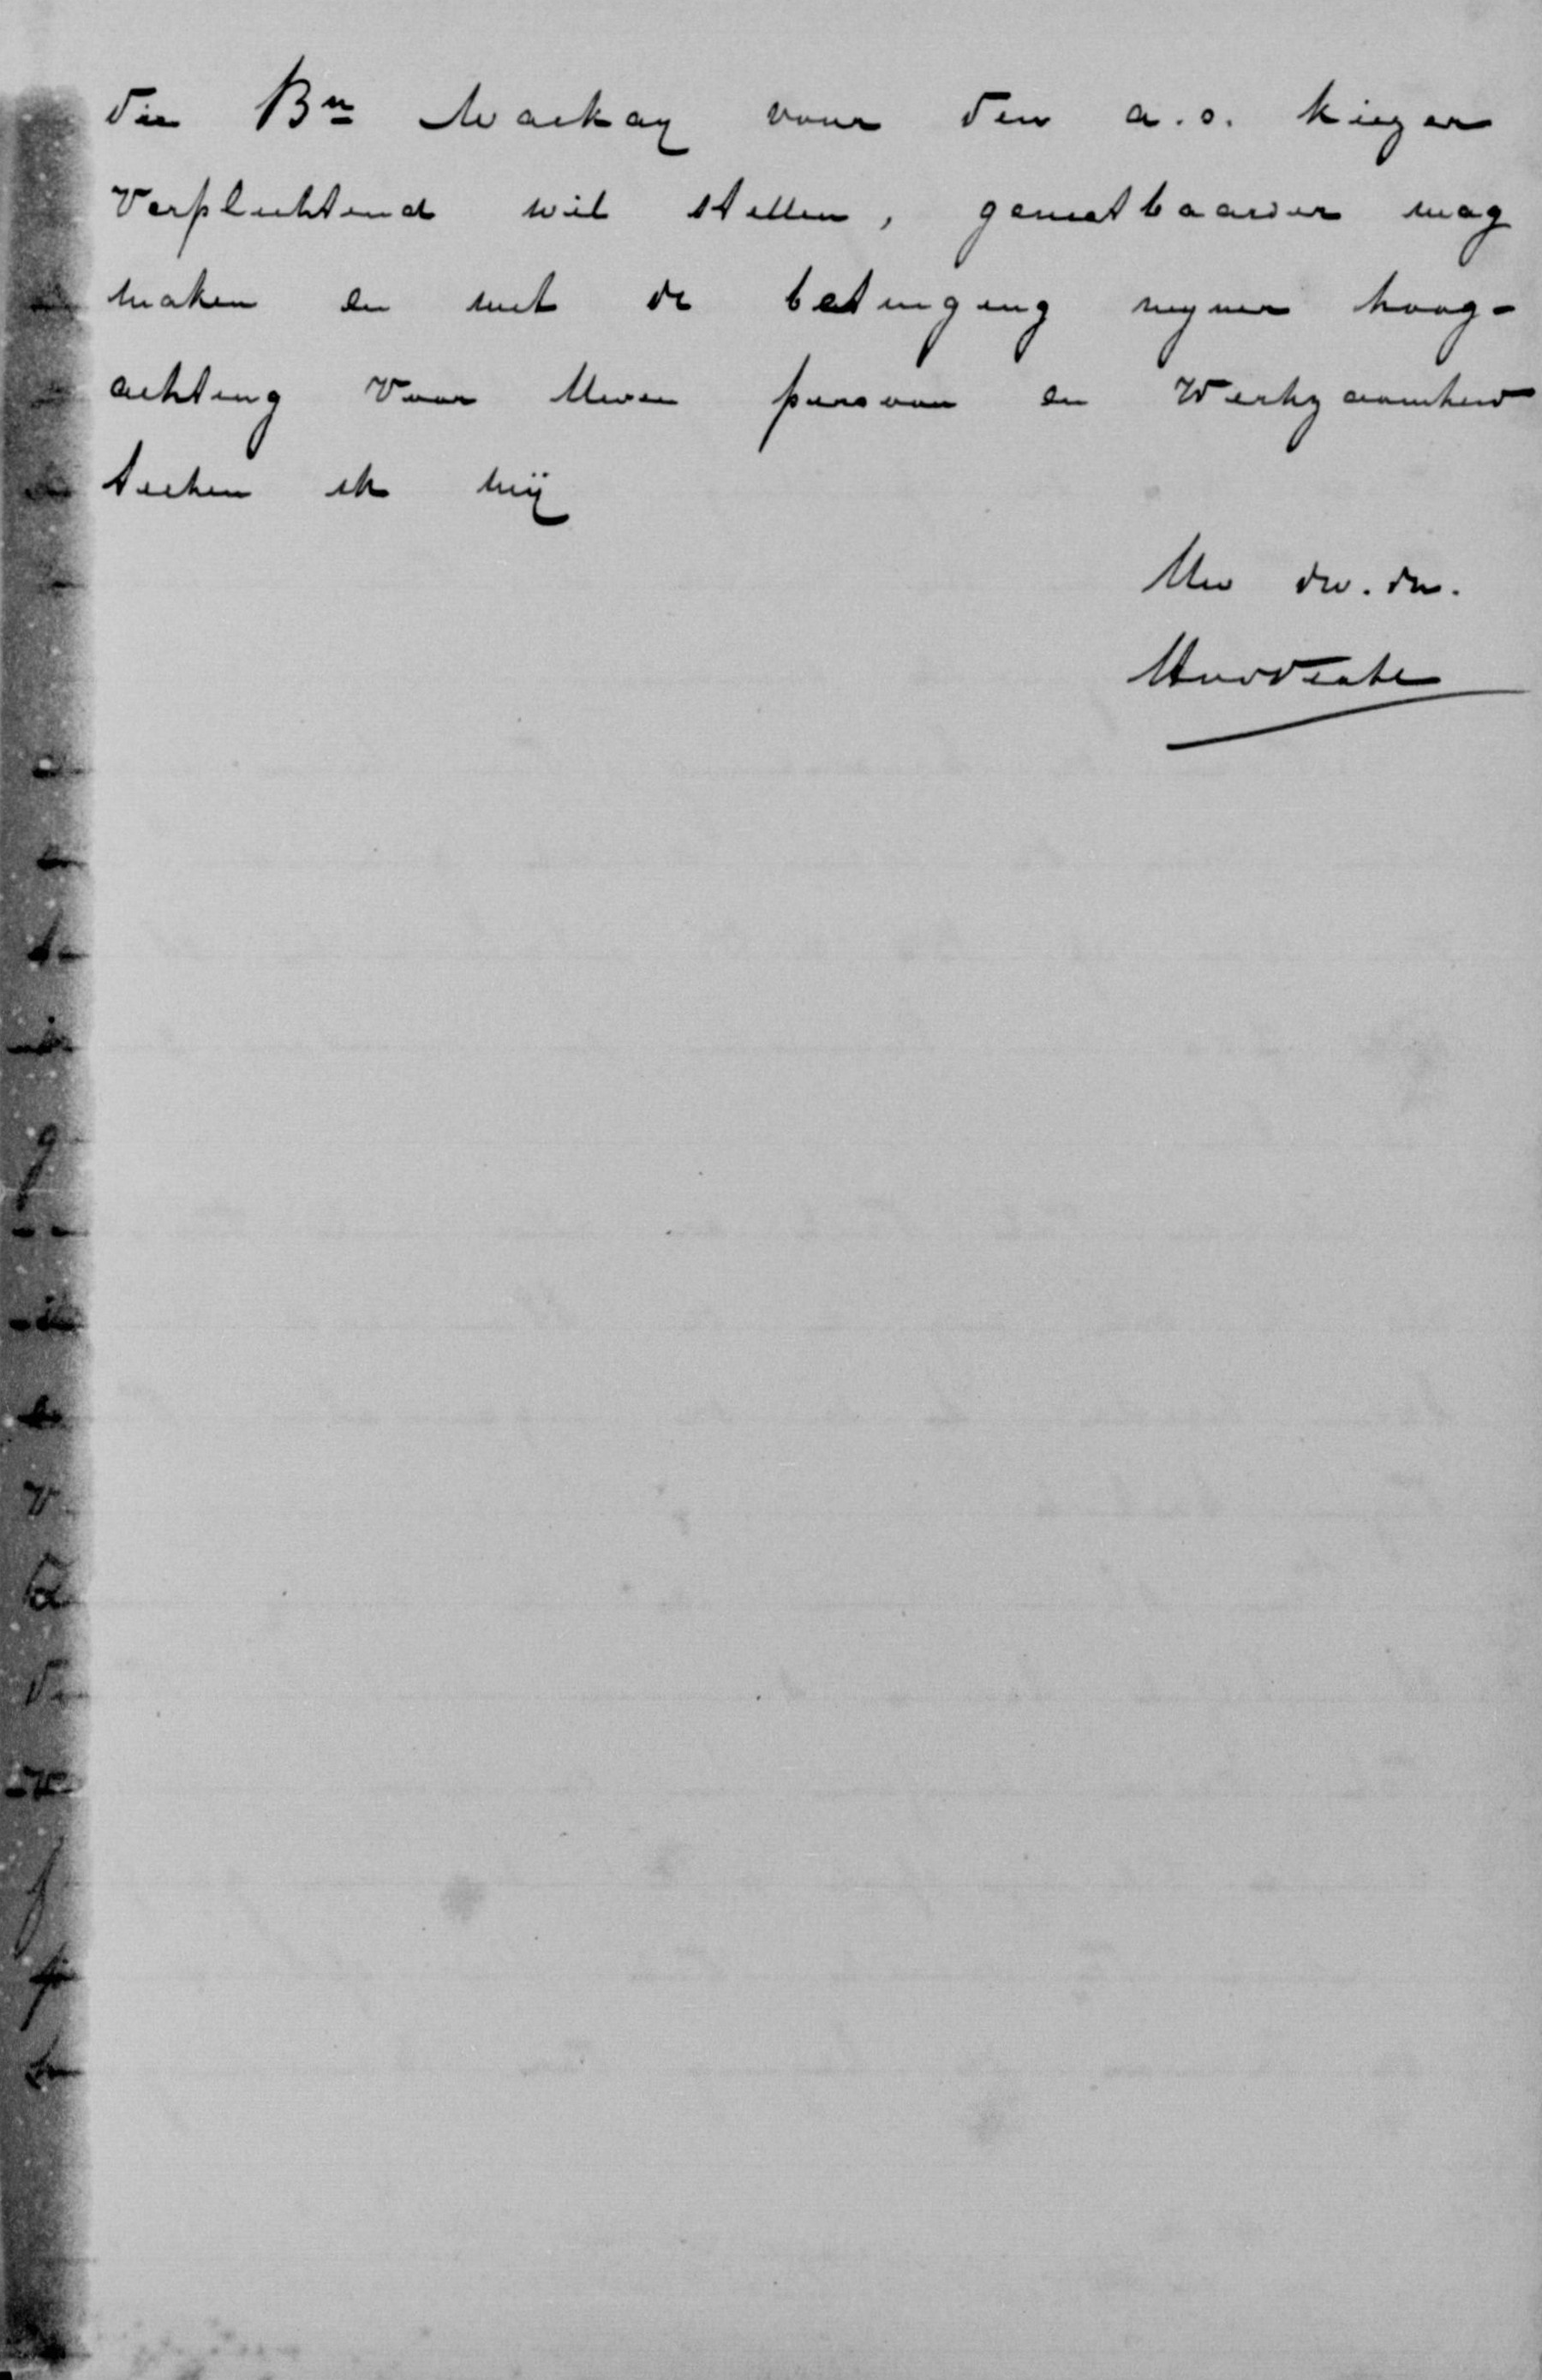 die Bn Mackay voor den a.s. kiezer
verplichtend wil stellen, genietbaarder mag
maken en met de betuiging mijner hoog-
achting voor Uwen persoon en werkzaamheid
teeken ik mij
Uw dw. dn.